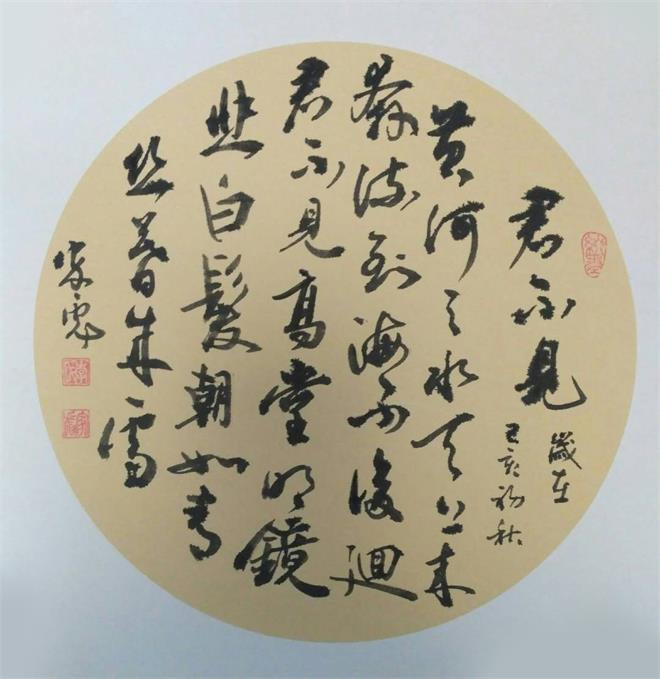 君不見
歲在
己亥初秋
黄河之水天上来
奔流到海不復迴
君不見高堂明鏡
悲白髮朝如青
丝暮成雪
家